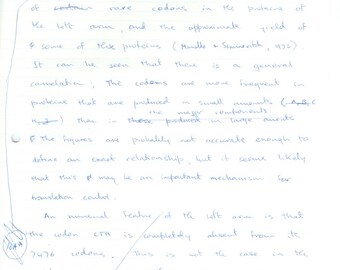 of rare codons in the proteins of
the left arm, and the approximate yield of
some of these proteins (
It can be seen that there is a general
correlation; The codons are more frequent in
proteins that are produced in small amounts (
the major components
) than in those produced in large amounts
The figures are probably not accurate enough to
define an exact relationship, but it seems likely
that this may be an important mechanism for
translation control.
An unusual feature of the left arm is that
the codon CTA is completely absent from its
7476 codons, This is not the case in the